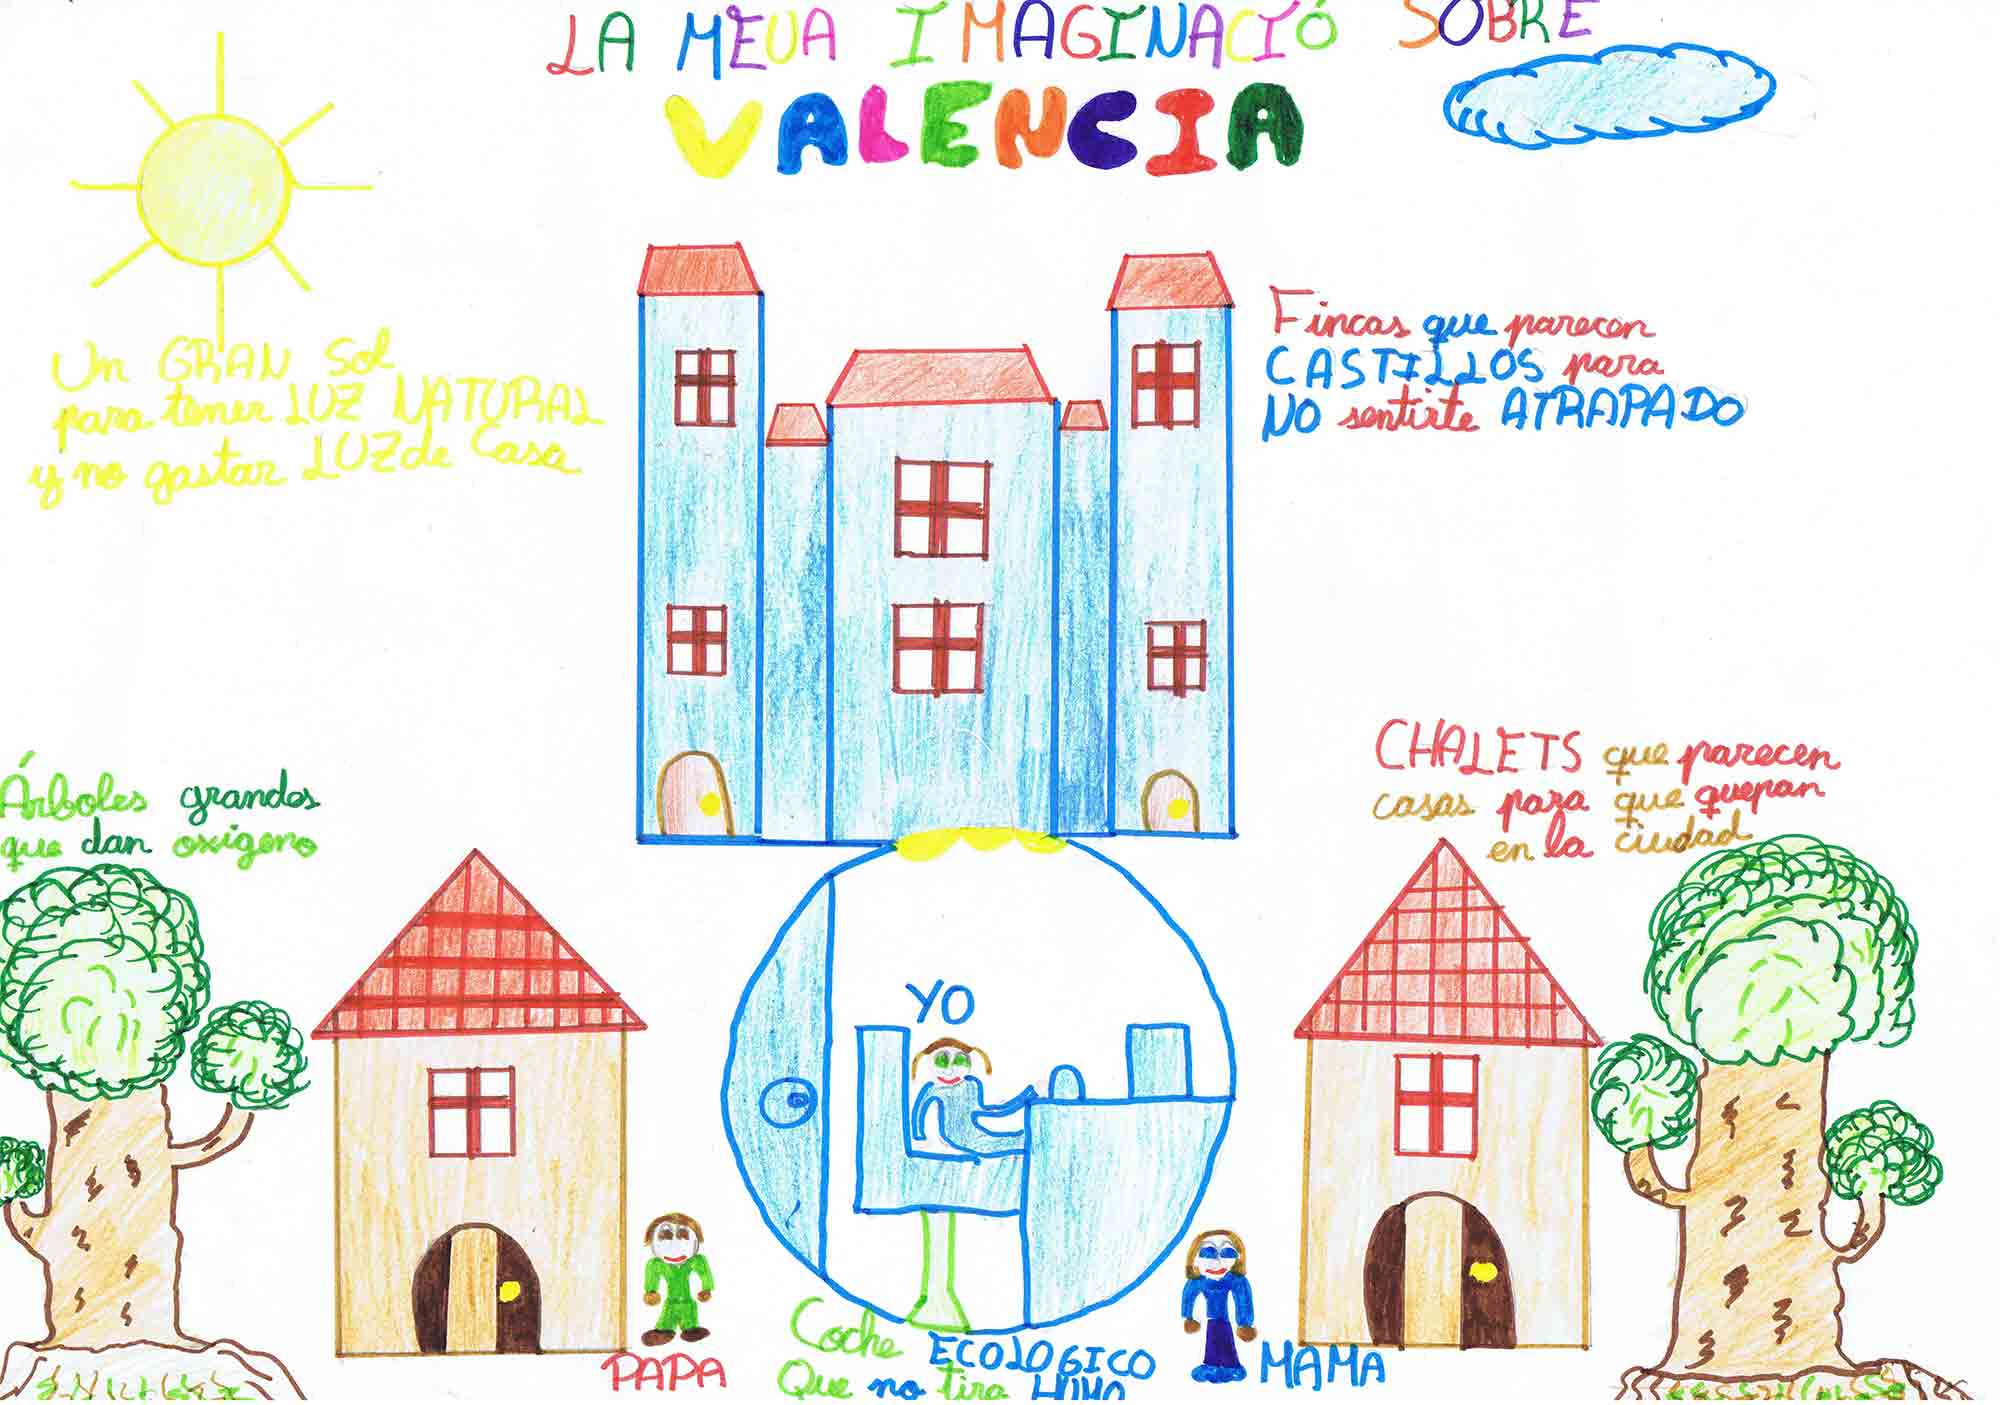 LA MEUA IMAGINACIÓ SOBRE
VALENCIA
Un GRAN Sol
para tener LUZ NATURAL
y no gastar LUZ de Casa
Fincas que parecen
CASTILLOS para
NO sentirte ATRAPADO
Árboles grandes
que dan oxigeno
CHALETS que parecen
casas para que quepan
en la ciudad
YO
PAPA
Coche ECOLOGICO
Que no tira HUMO
MAMA